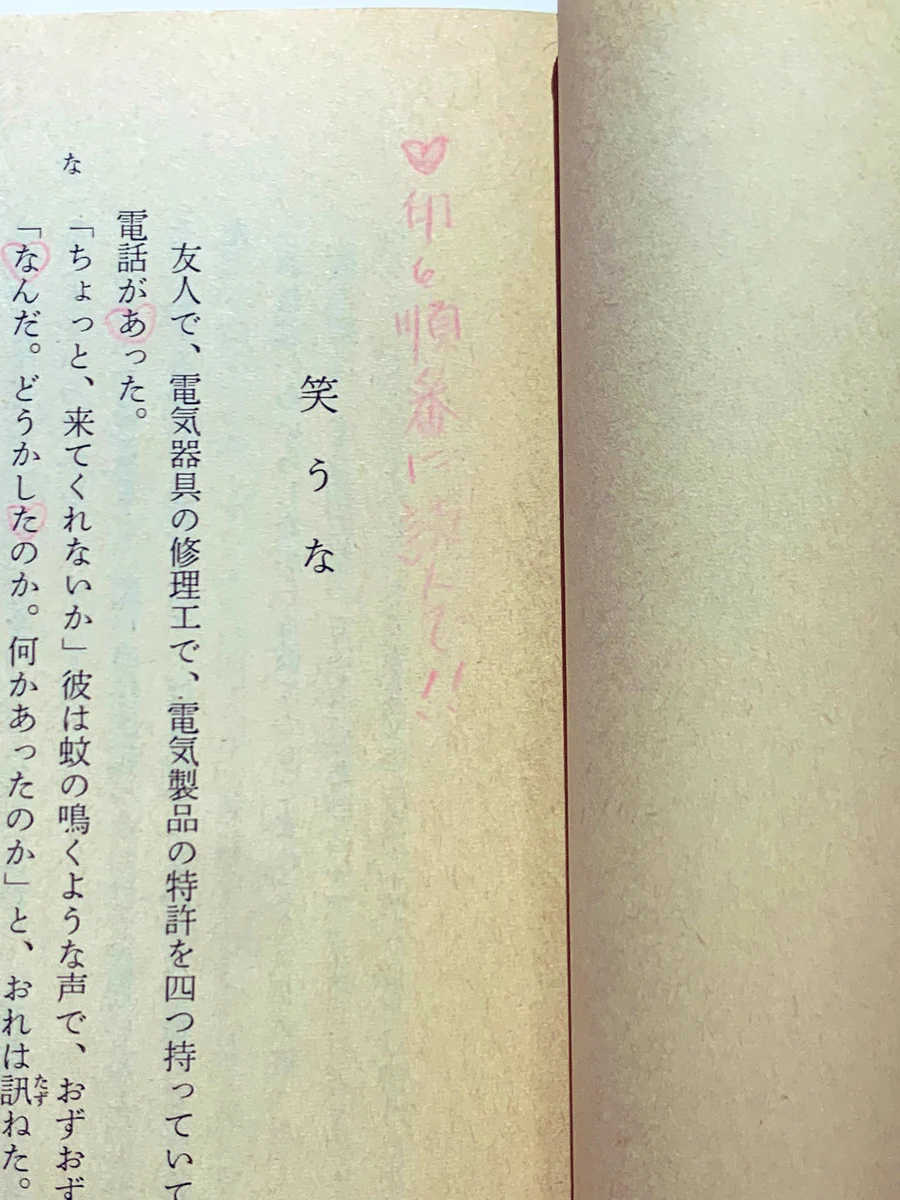 ♡印を順番に読んで!!
笑うな
友人で、電気器具の修理工で、電気製品の特許を四つ持っていて
電話があった。
「ちょっと、来てくれないか」彼は蚊の鳴くような声で、おずおず
な
「なんだ。どうかしたのか。何かあったのか」と、おれは訊ねた。
たず